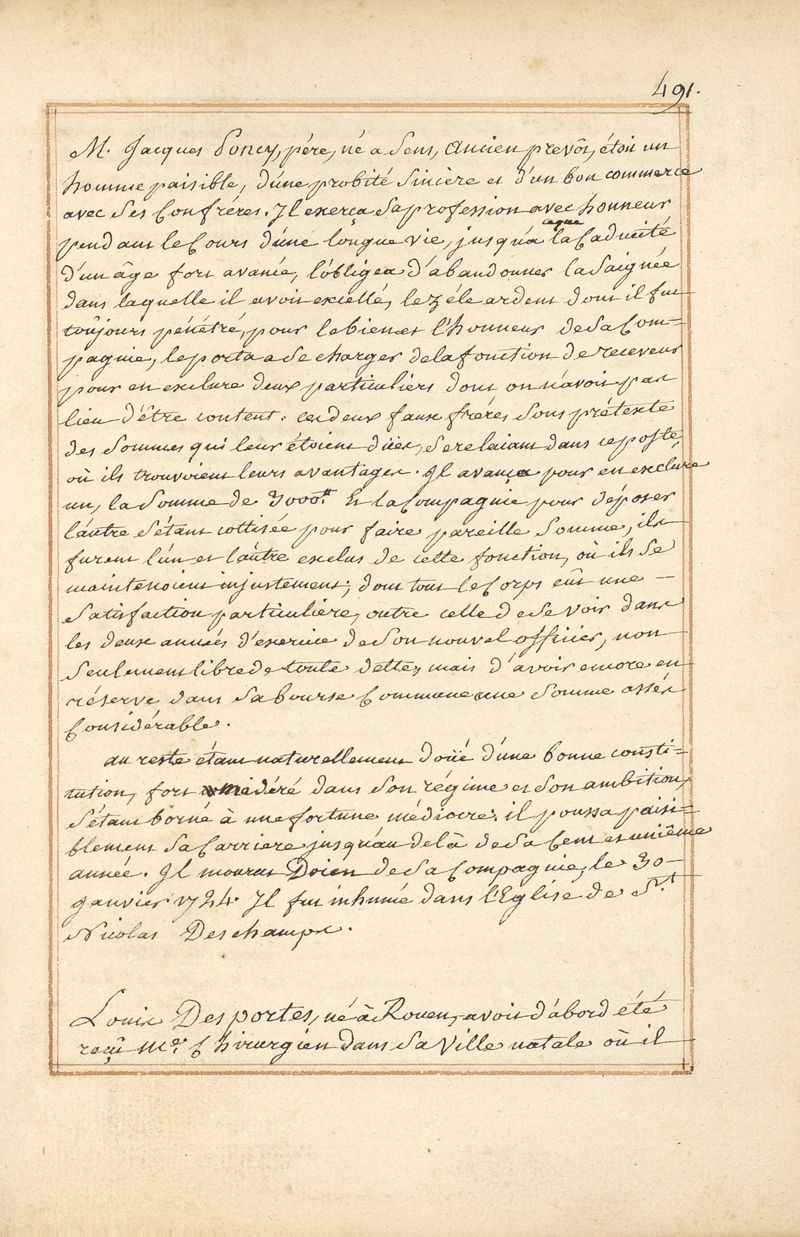 491.
M. Jacques Poncy, pére, né a Sens, Ancien prevôt, étoit un
homme paisible, d'une probité sincère et d'un bon commerce
avec ses Confréres. Il exerça sa profession avec honneur
pendant le Cours d'une longue vie, jusqu'a ceque la Caducité
d'un âge fort avancé, l'obligea d'abandonner la Saignée
dans laquelle il avoit excellé, le zéle ardent dont il fut
toujours pénétré, pour le bien et l'honneur de sa Com=
pagnie, le porta a se charger de la fonction de receveur
pour en exclure deux particuliers dont on n'avoit pas
lieu d'être content. ces deux faux fréres sous prétexte
des sommes qui leur étoient dües, se relaiant dans ce poste,
où ils trouvoient leurs avantages. Il avança pour en exclure
un, la somme de 3000.# Et la Compagnie pour déposer
l'autre s'étant cottisée pour faire pareille somme, ils
furent l'un et l'autre exclus de cette fonction, où ils se
maintenoient injustement; dont tout le Corps eût une —
satisfaction particuliere, outre celle de se voir dans
les deux années d'exercice de son nouvel officier, non
seulement libre de toute dette, mais d'avoir encore en
réserve dans sa bourse Commune une somme assés
Considérable.
au reste étant naturellement doüé d'une bonne consti=
tution, fort modéré dans son régime et son ambition,
s'étant borné à une fortune médiocre. il poussa paisi=
blement sa Carriere jusqu'au delà de sa Cent et uniéme
année. Il mourut Doien de sa Compagnie, le 30 —
Janvier 1724. Il fut inhumé dans l'Eglise de St.
Nicolas Deschamps.
Louis Desportes, né à Rouen, avoit d'abord été
reçû Me. Chirurgien dans sa Ville natale où il